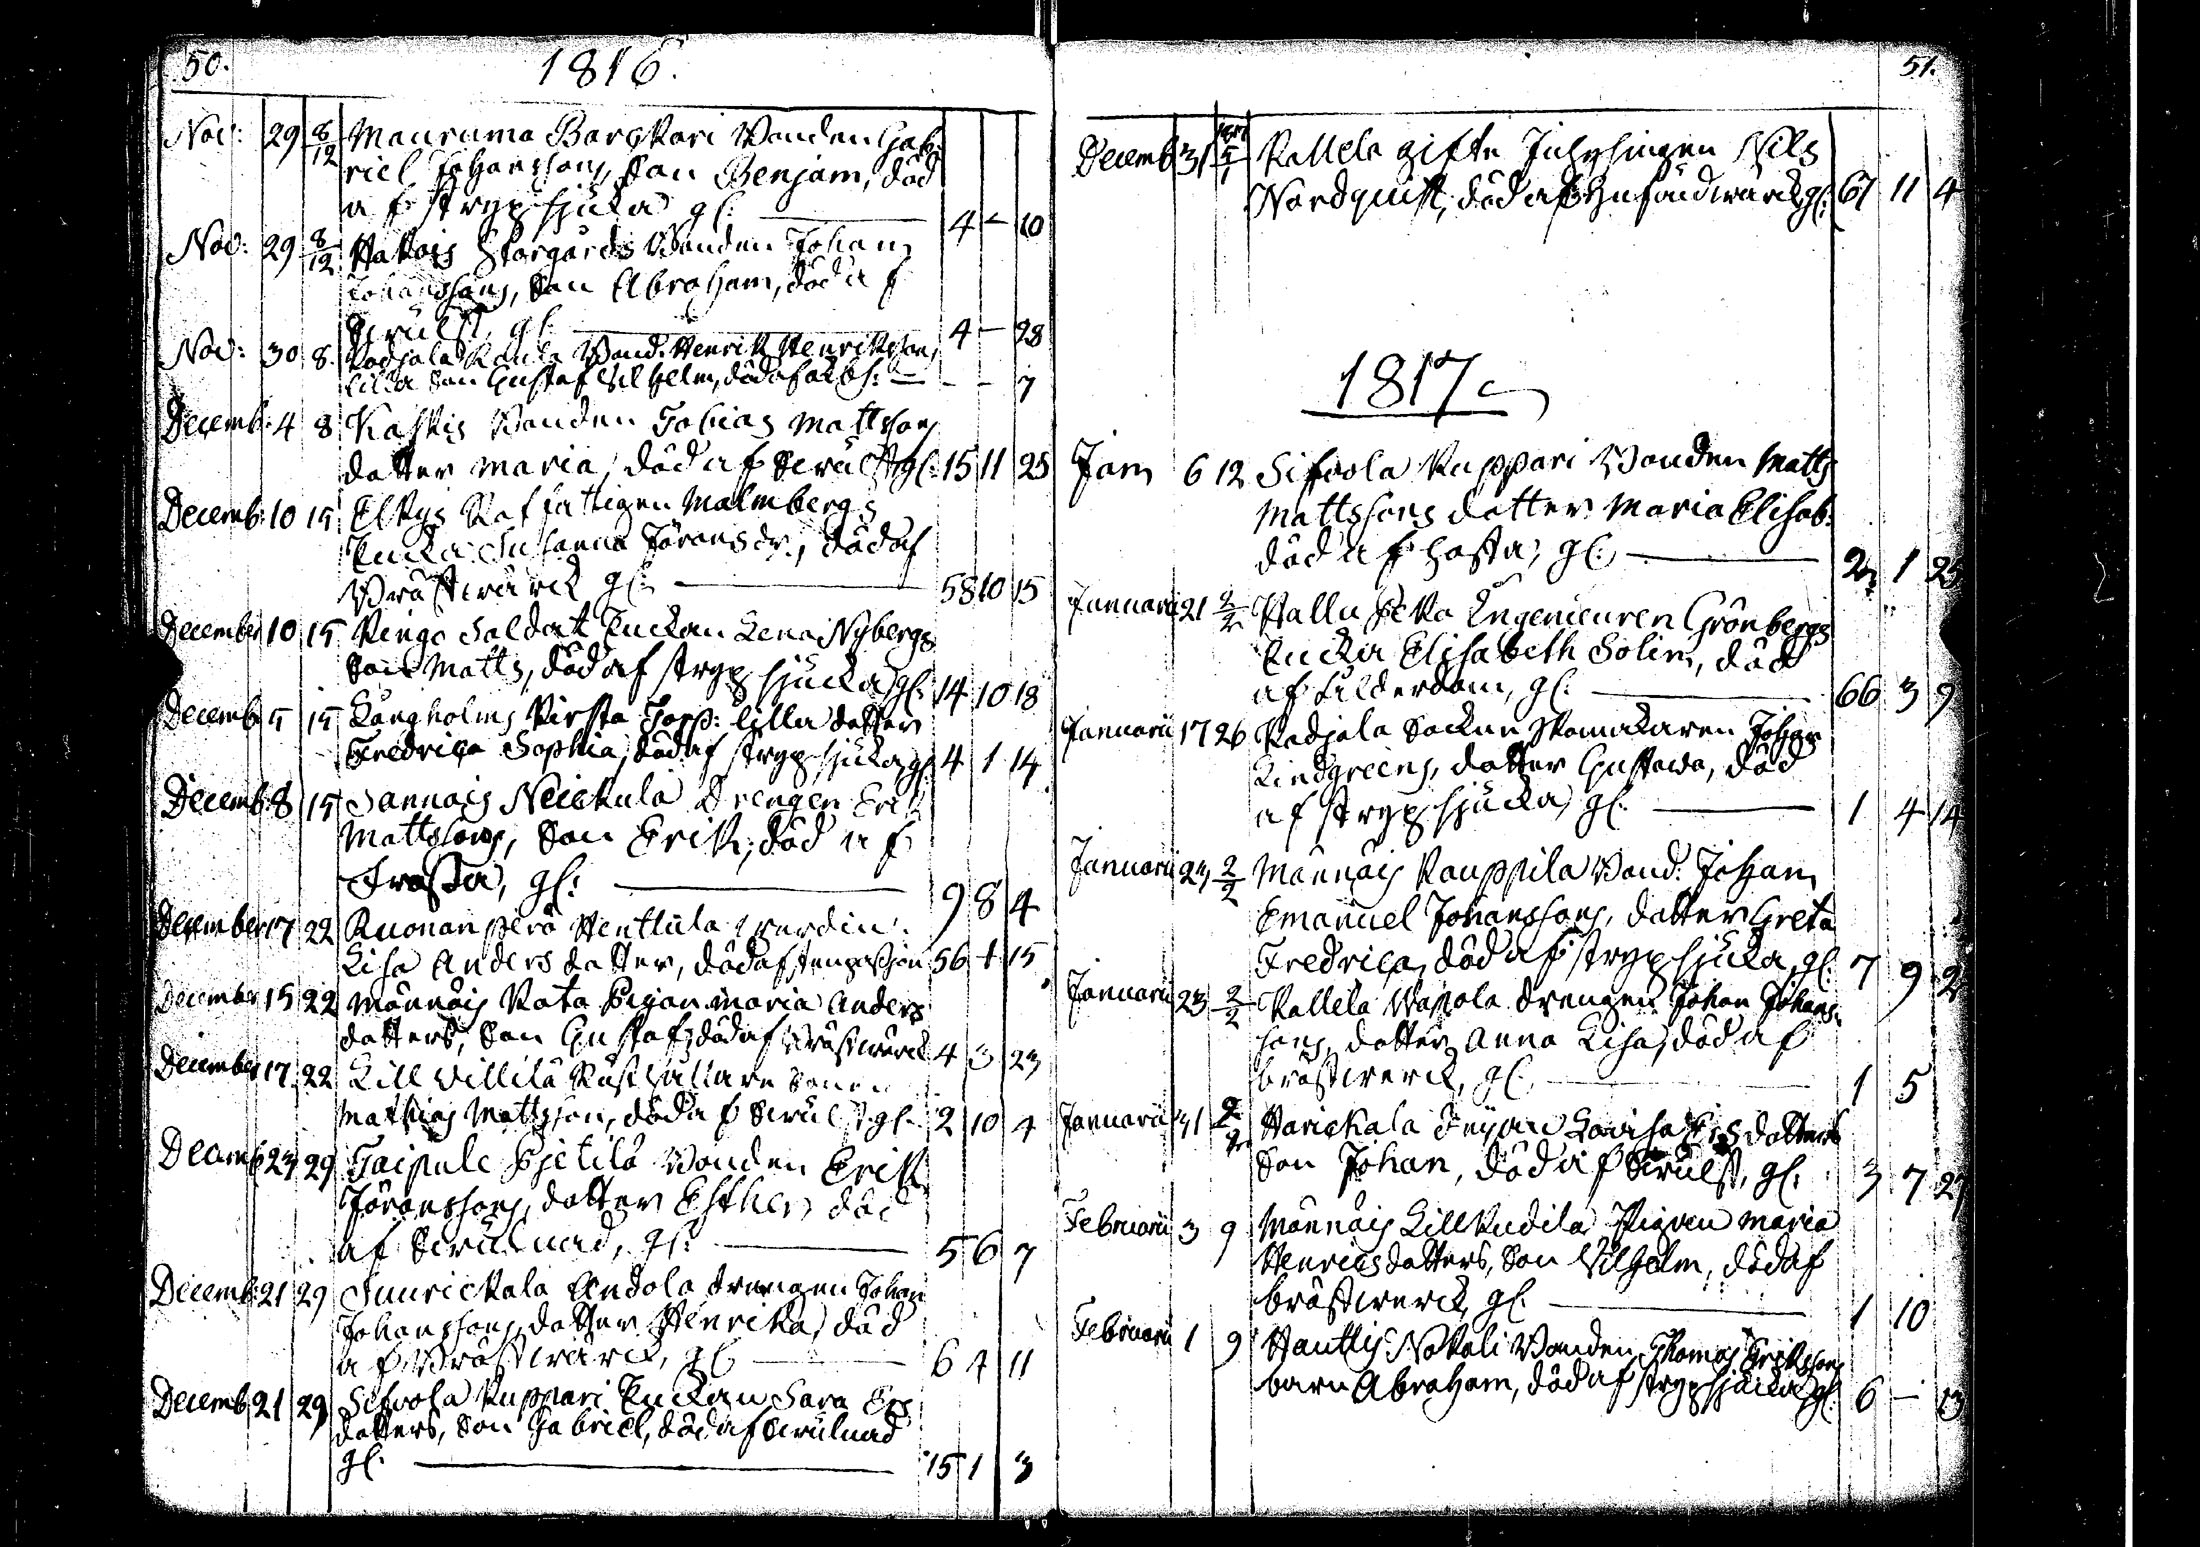 50.
1816.
Nov: 29 8/12 Maunuma Bargkari Bonden Gab-
riel Johanssons, Son Benjam, död
af strypsjuka gl: 4 — 10
Nov: 29 8/12 Hakois Storgårds Bonden Johan
Johanssons, Son Abraham, död af
Swulst, gl: 4 — 28
Nov: 30 8. Padjala Bond: Henrik Henrikssons
lilla Son Gustaf Vilhelm, död af — — 7
Decemb: 4 8 Kaskis Bonden Tobias Mattssons
dotter Maria, död af Swulst gl: 15 11 25
Decemb: 10 15 Elkys Rotfattigen Malmbergs
Encka Susanna Jöransdr., död af
Bröstwärck gl: 58 10 15
December 10 15 Soldat Enckan Lena Nybergs
Son Matts, död af strypsjucka gl: 14 10 18
Decemb 5 15 Långholms Torp: lilla dotter
Fredrica Sophia, död af strypsjucka gl 4 1 14
Decemb: 8 15 Sannais Neickula Drengen Erik
Mattssons, Son Erik, död af
Frossa, gl: 9 8 4
December 17 22 Ruonanperä Henttula
Lisa Andersdotter, död af 56 4 15
December 15 22 Männäis Kota Pigan Maria Anders
dotters, Son Gustaf, död af Bröstwärck 4 3 23
December 17 22 Lill Villilä Rusthållare Sonen
Mathias Mattsson, död af Swulst gl: 2 10 4
Decemb 23 29 Taipale Pjetilä Bonden Erik
Jöranssons, dotter Esther, död
af Swulnad, gl: 5 6 7
Decemb: 21 29 Juurickala Andola drengen Johan
Johanssons, dotter Henrika, död
af Bröstwärck, gl 6 4 11
Decemb 21 29 Sifvola Kuppari Enckan Sara Ers
dotters, Son Gabriel, död af Swulnad
gl. 15 1 3
51.
Decemb 31 5/1 Kallela gifte Nils
Nordquist, död af gl: 67 11 4
1817
Jan 6 12 Sifvola Kuppari Bonden Matts
Mattssons dotter Maria Elisab:
död af hosta, gl: 2 1 25
Januarii 21 2/2 Ingenieuren Grönbergs
Encka Elisabeth Solin, död
af ålderdom, gl: 66 3 9
Januarii 17 26 Padjala Sockne Skomakaren Johan
Lindgreens, dotter Gustava, död
af strypsjucka, gl: 1 4 14
Januarii 23 2/2 Männäis Kauppila Bond: Johan
Emanuel Johanssons, dotter Greta
Fredrica, död af strypsjuka gl: 7 9 2
Januarii 23 2/2 Kallela drengen Johan Johans-
sons, dotter Anna Lisa, död af
bröstwerck, gl. 1 5
Januarii 31 2/2 Harickala Lovisa Ersdotters
Son Johan, död af Swulst, gl: 3 7 27
Februarii 3 9 Männäis Lill Kudila Pigan Maria
Henricsdotters, Son Vilhelm, död af
bröstwerck, gl. 1 10
Februarii 1 9 Hanttis Nokali Bonden Thomas Erikssons
barn Abraham, död af strypsjucka gl: 6 — 13